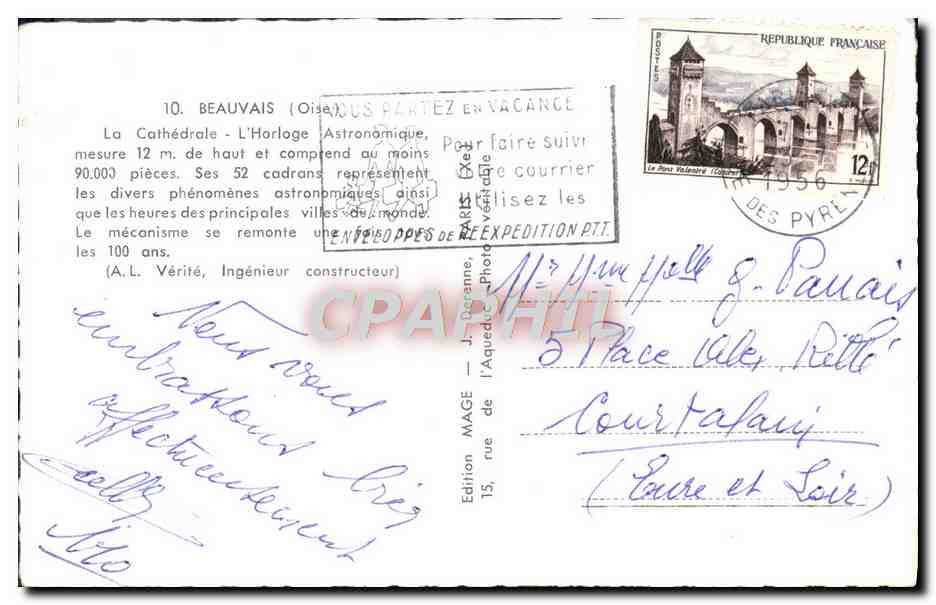 10. BEAUVAIS (Oise)
La Cathédrale - L'Horloge Astronomique,
mesure 12 m. de haut et comprend au moins
90.000 pièces. Ses 52 cadrans représentent
les divers phénomènes astronomiques ainsi
que les heures des principales villes du monde.
Le mécanisme se remonte une fois pour
les 100 ans.
(A.L. Vérité, Ingénieur constructeur)
VOUS PARTEZ EN VACANCE
Pour faire suivre
votre courrier
Utilisez les
ENVELOPPES DE REEXPEDITION P.T.T.
POSTES
REPUBLIQUE FRANÇAISE
Le Pont Valentré
12F
1956
DES PYREN
Edition MAGE — J. Derenne, PARIS (Xe)
15, rue de l'Aqueduc - Photo véritable
CPAPHIL
Nous vous
embrassons bien
affectueusement
Mr Mme Melle G.
5 Place
Courtalain
(Eure et Loir)